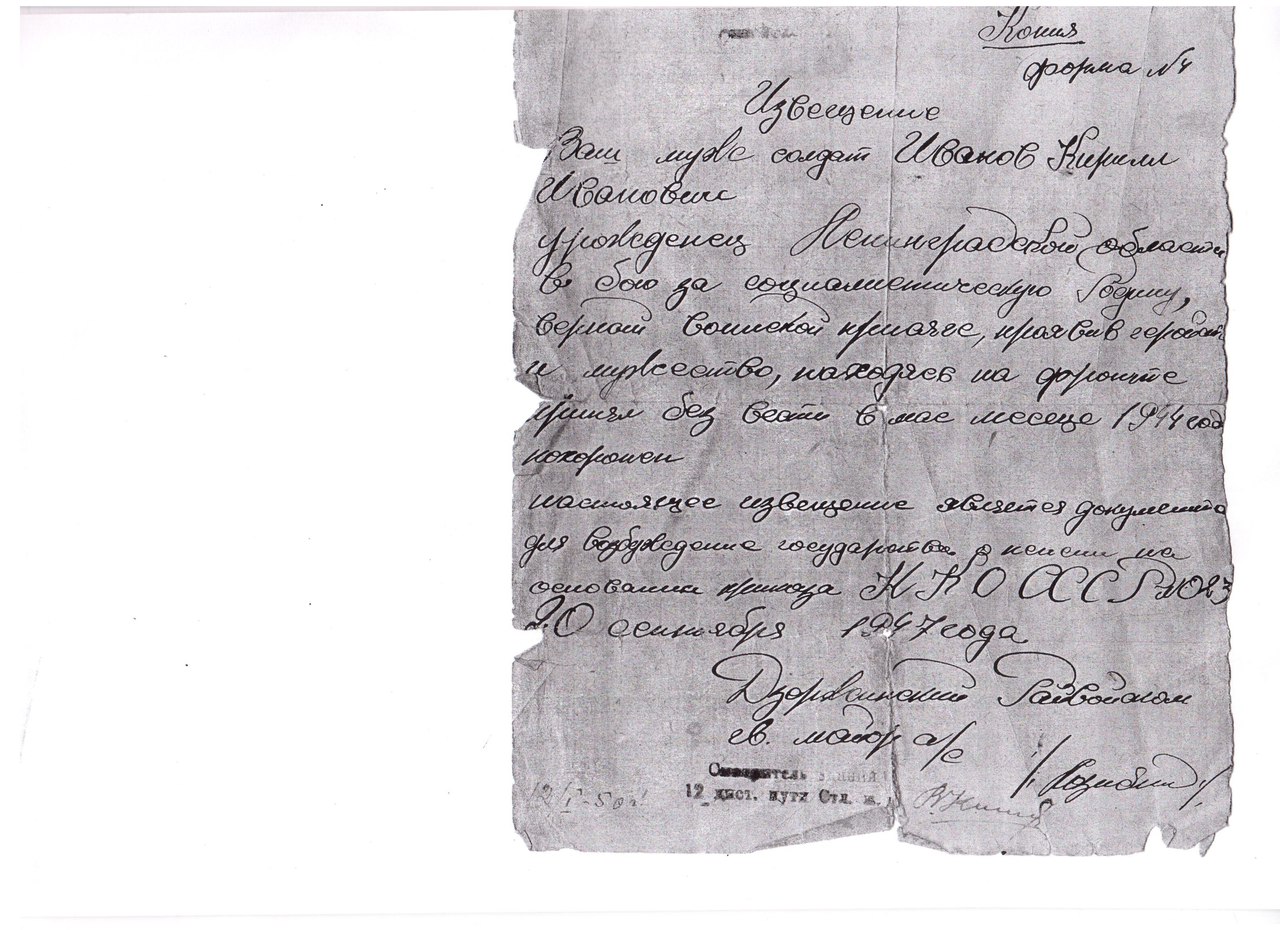 Копия
форма №4
Извещение
Ваш муж солдат Иванов Кирилл
Иванович
уроженец Ленинградской области
в бою за социалистическую Родину,
верной воинской присяге, проявив геройст
и мужество, находясь на фронте
пропал без вести в мае месеце 1944 год
похоронен
настоящее извещение является документо
для возбуждение государства о пенсии на
основании приказа НКО СССР №023
20 сентября 1947 года
Дзержинский Райвойском
гв. майор а/с
12 дист. пути Отд. ж.
12/I-50 г.